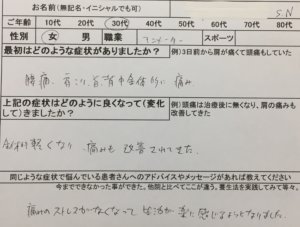 お名前(無記名・イニシャルでも可) S.N
ご年齢 10代 20代 30代 40代 50代 60代 70代 80代
性別 女 男 職業 スポーツ
最初はどのような症状がありましたか? 例)3日前から肩が痛くて頭痛もしていた
腰痛、肩こり、背中全体的に痛み
上記の症状はどのように良くなって(変化して)きましたか? 例)頭痛は治療後に無くなり、肩の痛みも改善してきた
全体的軽くなり 痛みも改善されてきた。
同じような症状で悩んでいる患者さんへのアドバイスやメッセージがあれば教えてください
今までできなかった事ができた。他院と比べてここが違う。養生法を実践してみて等々。
痛みのストレスがなくなって 生活が楽に感じるようになりました。